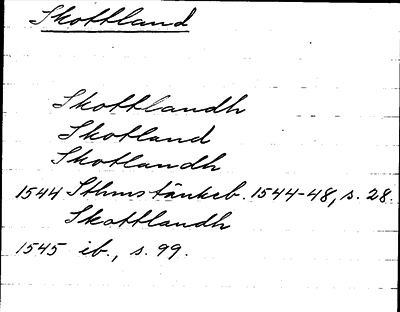 Skottland
Skottlandh
Skotland
Skotlandh
1544 Sthms tänkeb. 1544-48, s. 28.
Skottlandh
1545 ib., s. 99.